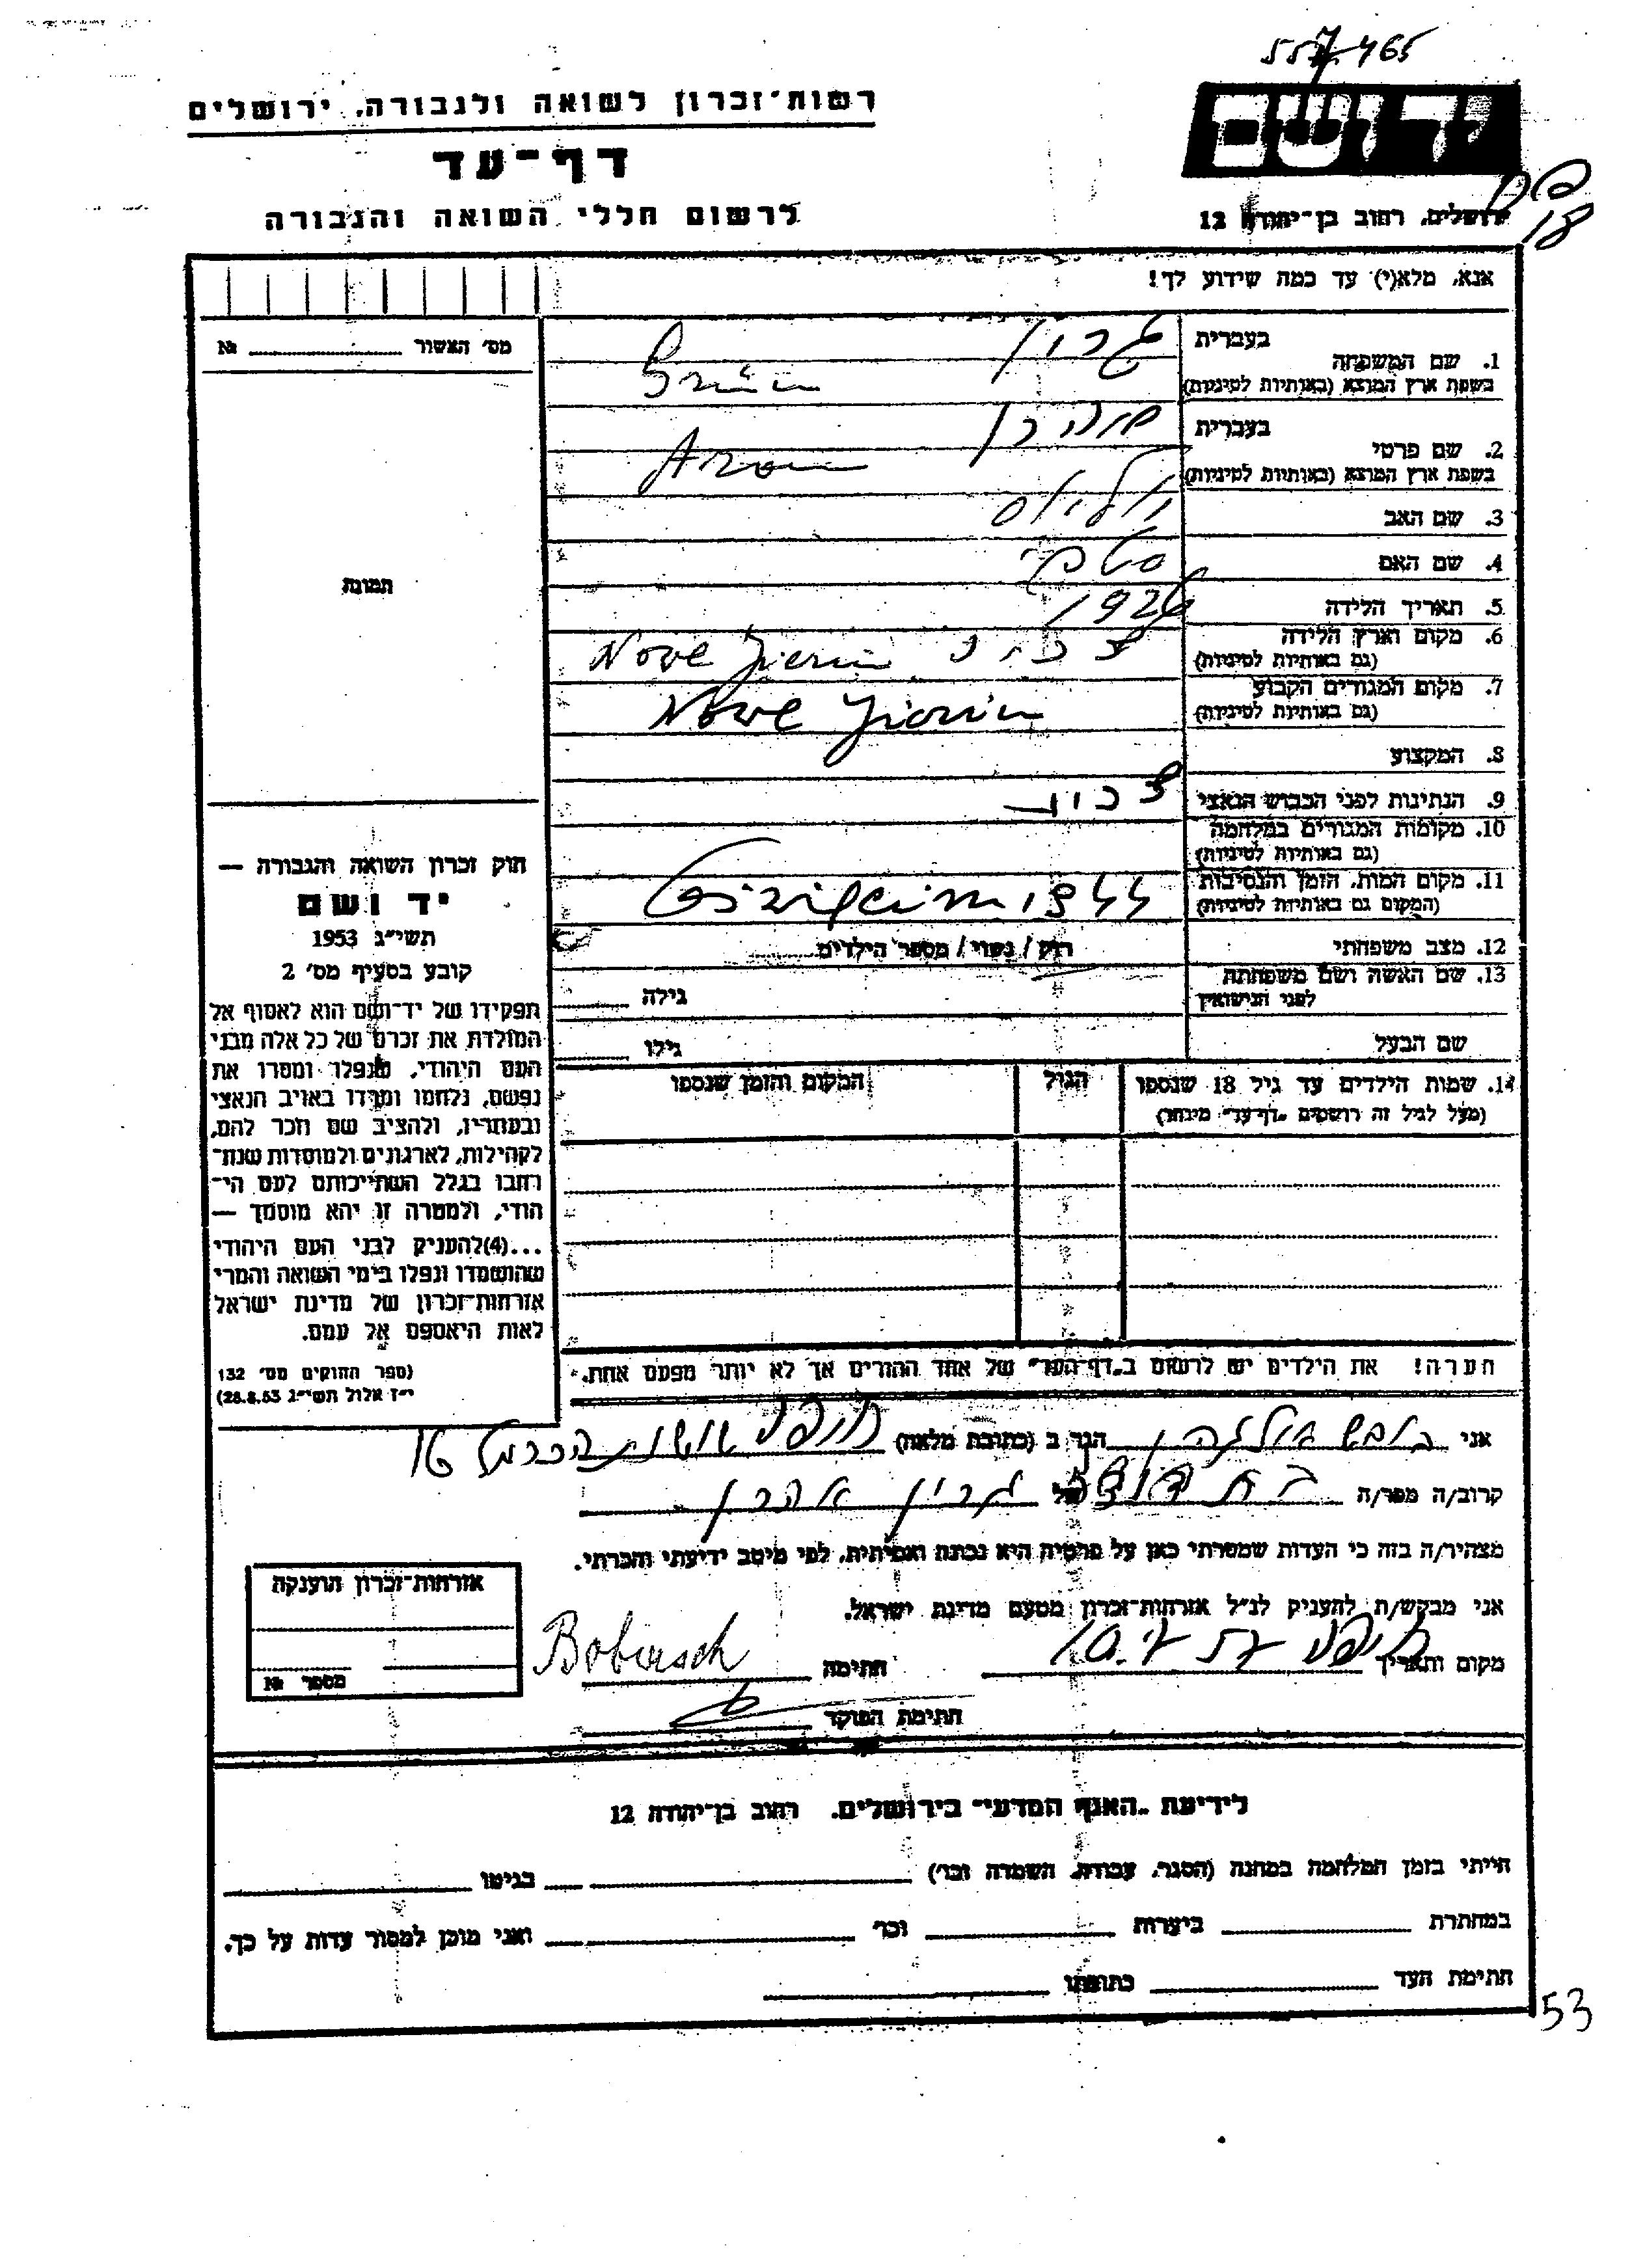 557465
רשות־זכרון לשואה ולגבורה, ירושלים
ידושם
דף־עד
לרשום חללי השואה והגבורה
ירושלים, רחוב בן־יהודה 12
18
אנא, מלא(י) עד כמה שידוע לך!
מס׳ האשור № 
1. שם המשפחה
בעברית גרין
בשפת ארץ המוצא (באותיות לטיניות) Grün
2. שם פרטי
בעברית אהרן
בשפת ארץ המוצא (באותיות לטיניות) Aron
3. שם האב
4. שם האם
5. תאריך הלידה 1926
6. מקום וארץ הלידה
(גם באותיות לטיניות) Nove
7. מקום המגורים הקבוע
(גם באותיות לטיניות) Nove
8. המקצוע
9. הנתינות לפני הכבוש הנאצי
10. מקומות המגורים במלחמה
(גם באותיות לטיניות)
11. מקום המות, הזמן והנסיבות
(המקום גם באותיות לטיניות) 1944
12. מצב משפחתי רוק / נשוי / מספר הילדים
13. שם האשה ושם משפחתה
לפני הנישואין גילה
שם הבעל גילו
14. שמות הילדים עד גיל 18 שנספו
(מעל לגיל זה רושמים „דף־עד״ מיוחד)
הגיל
המקום והזמן שנספו
תמונה
חוק זכרון השואה והגבורה —
יד ושם
תשי״ג 1953
קובע בסעיף מס׳ 2
תפקידו של יד־ושם הוא לאסוף אל
המולדת את זכרם של כל אלה מבני
העם היהודי, שנפלו ומסרו את
נפשם, נלחמו ומרדו באויב הנאצי
ובעוזריו, ולהציב שם וזכר להם,
לקהילות, לארגונים ולמוסדות שנח־
רבו בגלל השתייכותם לעם הי־
הודי, ולמטרה זו יהא מוסמך —
...(4)להעניק לבני העם היהודי
שהושמדו ונפלו בימי השואה והמרי
אזרחות־זכרון של מדינת ישראל
לאות היאספם אל עמם.
(ספר החוקים מס׳ 132
י״ז אלול תשי״ג 28.8.53)
הערה! את הילדים יש לרשום ב„דף־העד״ של אחד ההורים אך לא יותר מפעם אחת.
אני הגר ב (כתובת מלאה) חיפה
קרוב/ה מפר/ה של גרין אהרן
מצהיר/ה בזה כי העדות שמסרתי כאן על פרטיה היא נכונה ואמיתית, לפי מיטב ידיעתי והכרתי.
אני מבקש/ת להעניק לנ״ל אזרחות־זכרון מטעם מדינת ישראל.
מקום ותאריך חיפה חתימה Bobersch
חתימת הפוקד
אזרחות־זכרון הוענקה
מספר №
לידיעת „האגף המדעי״ בירושלים. רחוב בן־יהודה 12
הייתי בזמן המלחמה במחנה (הסגר, עבודה, השמדה וכו׳) בגיטו
במחתרת ביערות וכו׳ ואני מוכן למסור עדות על כך.
חתימת העד כתובתו
53